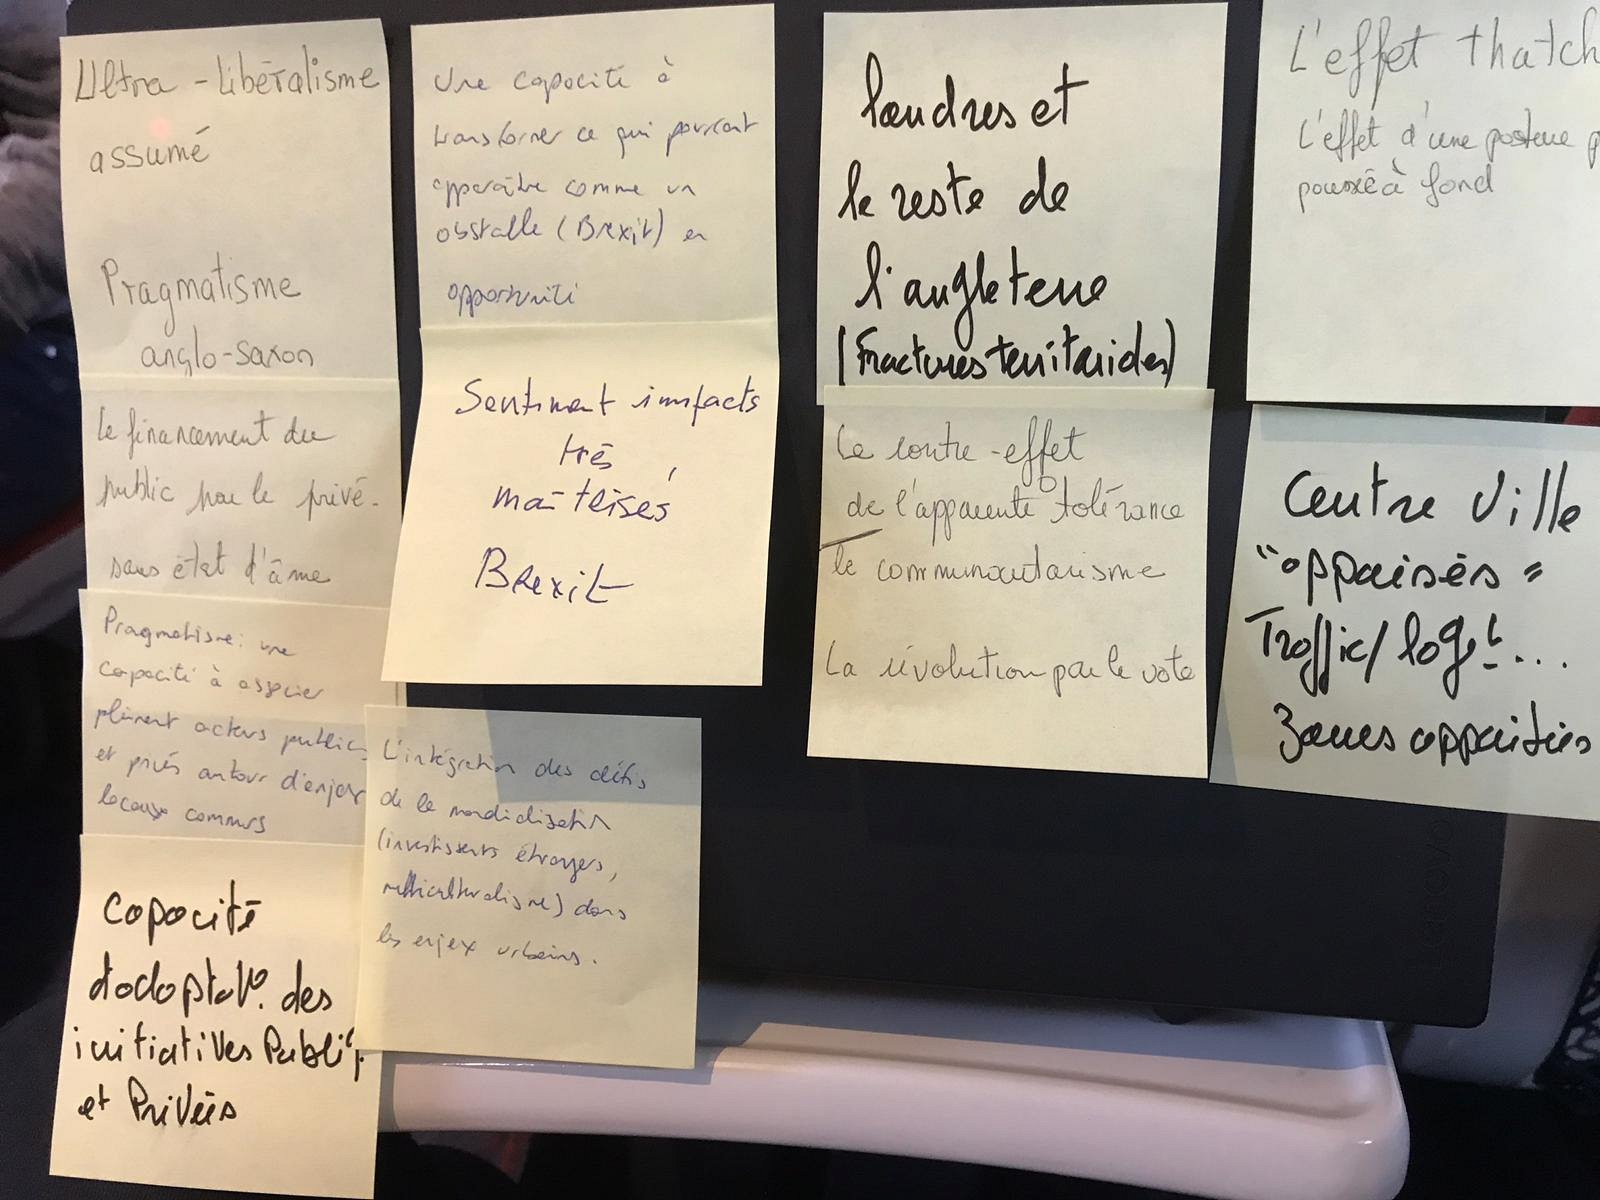 Ultra-libéralisme
assumé
Pragmatisme
anglo-saxon
Le financement du
public par le privé.
sans état d'âme
Pragmatisme: une
capacité à associer
pleinement acteurs publics
et privés autour d'enjeux
locaux communs
Capacité
d'adaptat°. des
initiatives Publiq.
et Privées
Une capacité à
transformer ce qui pourrait
apparaître comme un
obstacle (Brexit) en
opportunité
Sentiment impacts
très
maîtrisés
Brexit
L'intégration des défis
de la mondialisation
(investisseurs étrangers,
multiculturalisme) dans
les enjeux urbains.
Londres et
le reste de
l'angleterre
(Fractures territoriales)
Le contre-effet
de l'apparente tolérance
le communautarisme
La révolution par le vote
L'effet thatch
L'effet d'une posture p
poussée à fond
Centre Ville
"appaisés"
Traffic/ logt...
Zones appaisées